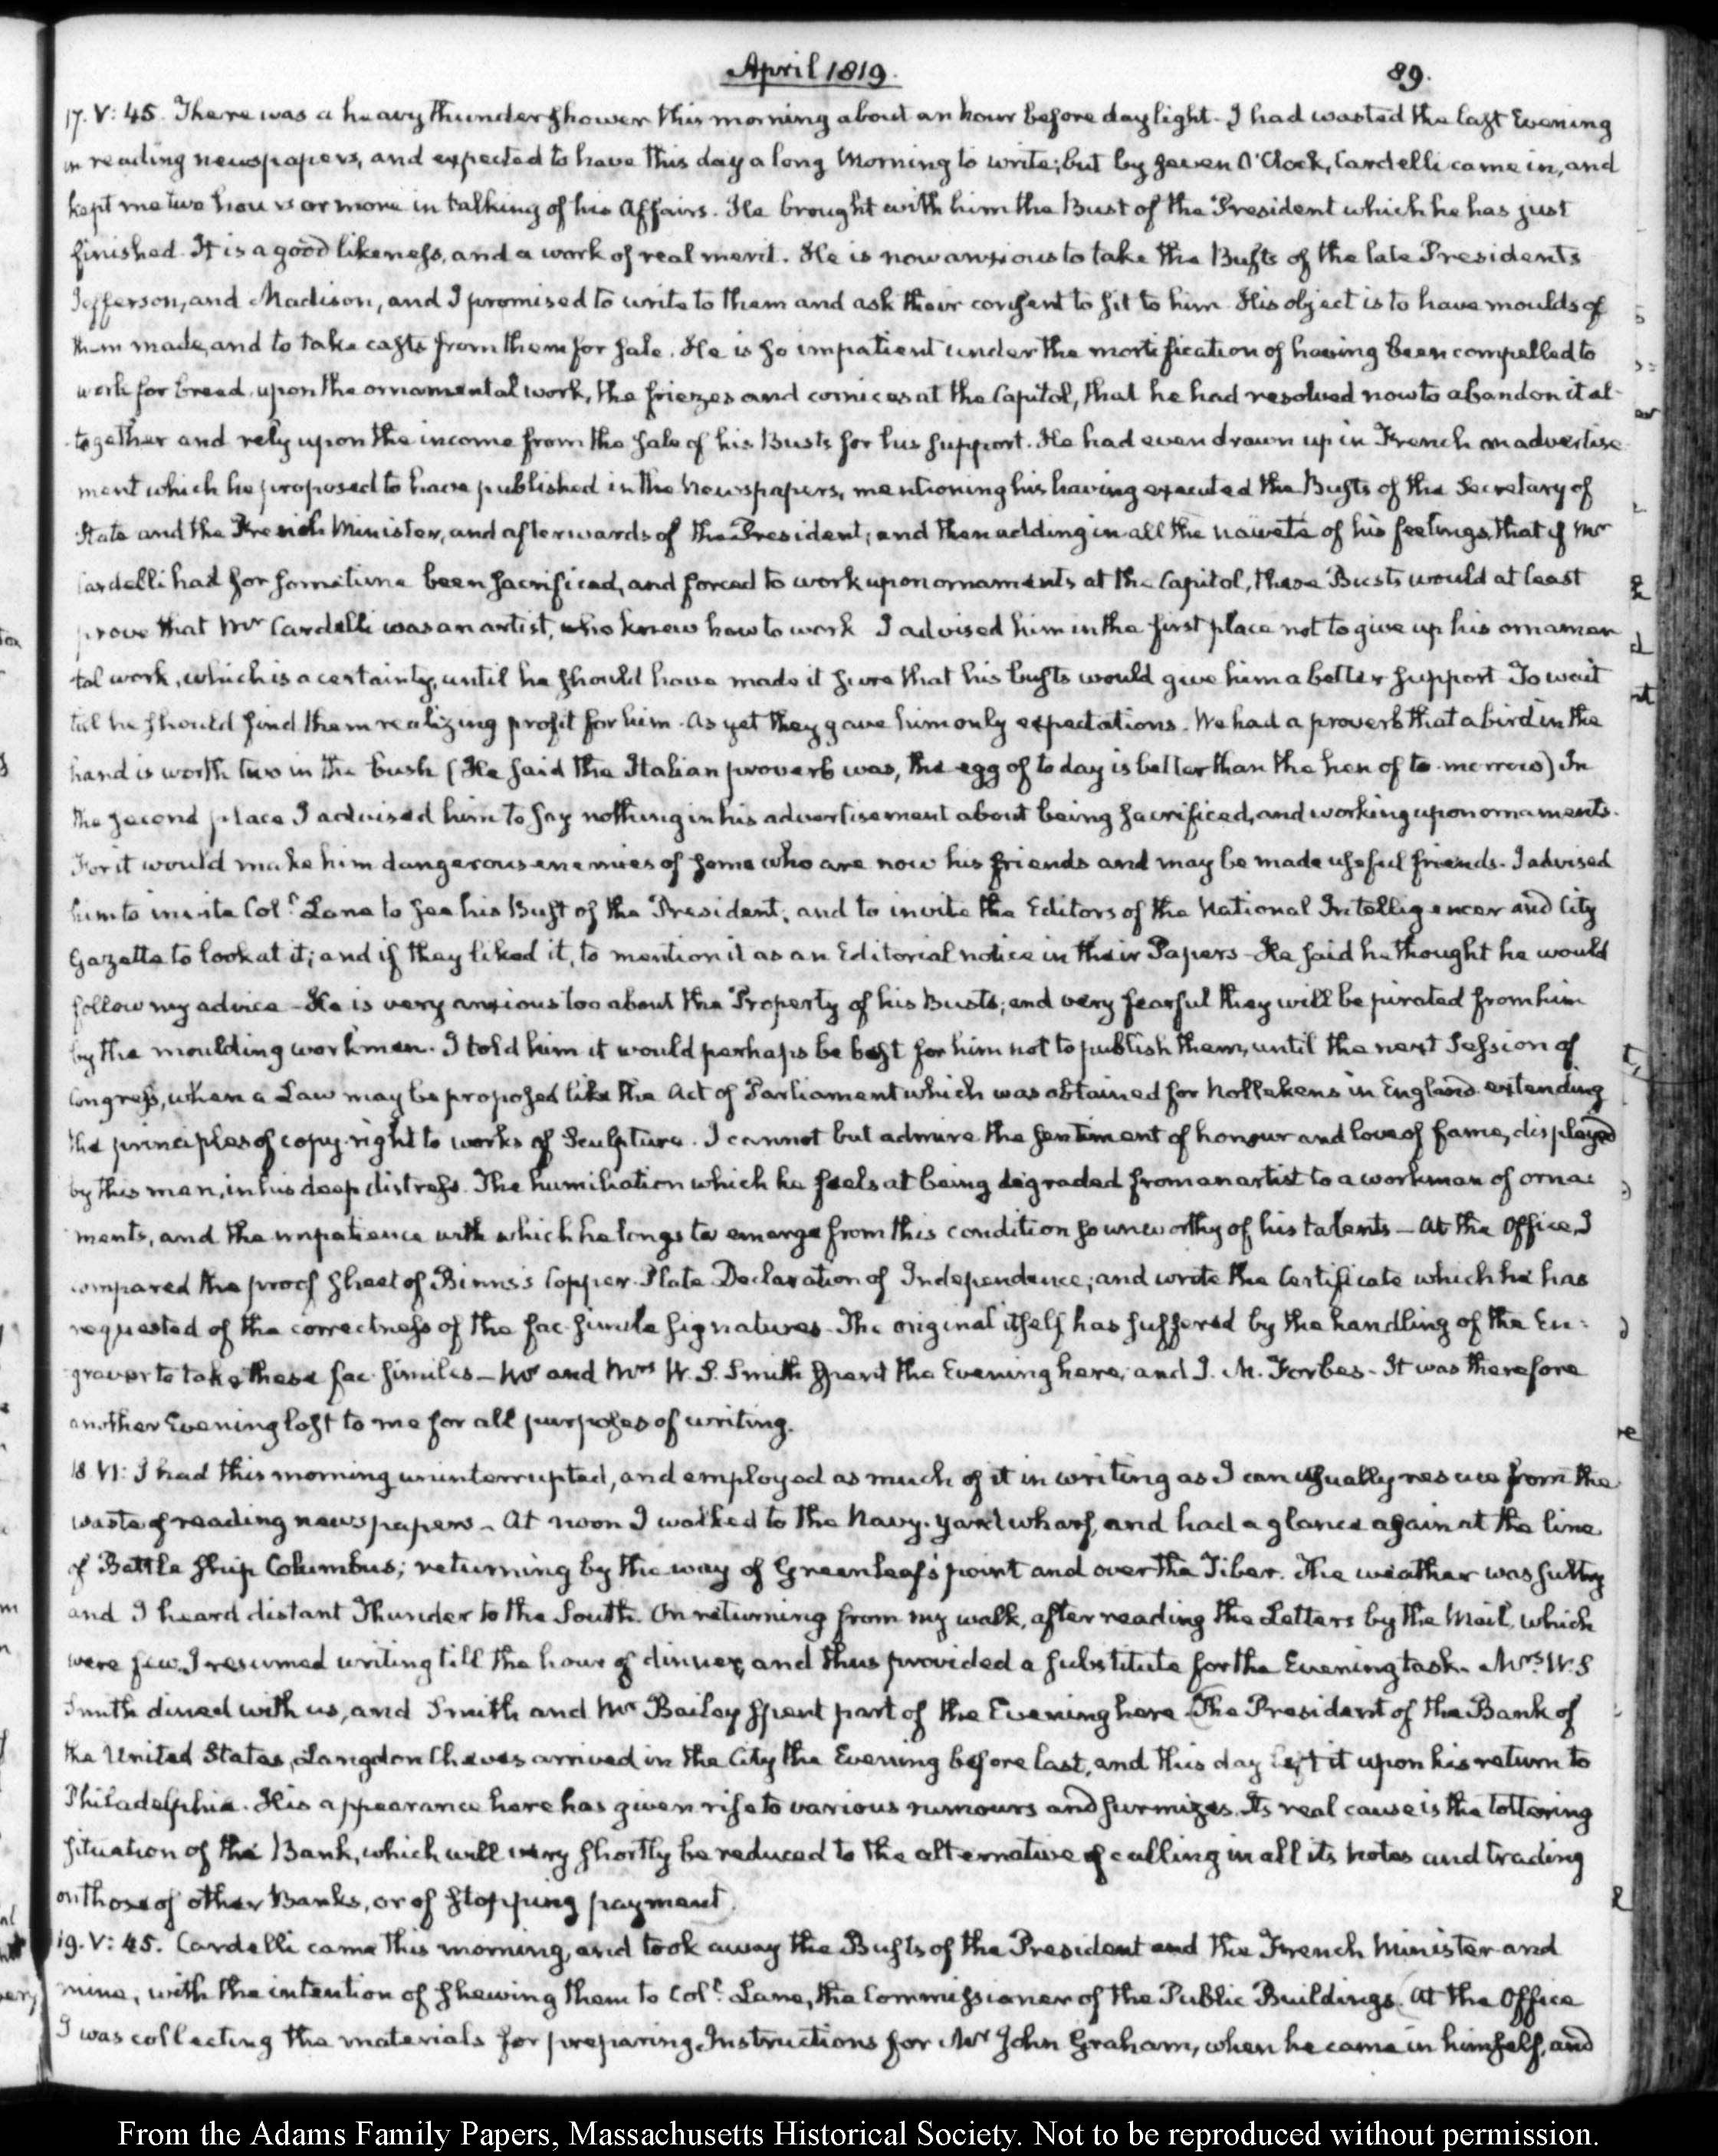 April 1819.
89.
17. V: 45. There was a heavy thunder shower this morning about an hour before day light. I had wasted the last Evening
in reading newspapers, and expected to have this day a long Morning to write; but by seven O'Clock, Cardelli came in, and
kept me two hours or more in talking of his Affairs. He brought with him the Bust of the President which he has just
finished. It is a good likeness, and a work of real merit. He is now anxious to take the Busts of the late Presidents
Jefferson, and Madison, and I promised to write to them and ask their consent to sit to him. His object is to have moulds of
them made, and to take casts from them for sale. He is so impatient under the mortification of having been compelled to
work for bread, upon the ornamental work, the friezes and cornices at the Capitol, that he had resolved now to abandon it al-
together and rely upon the income from the sale of his Busts for his support. He had even drawn up in French an advertise
ment which he proposed to have published in the Newspapers, mentioning his having executed the Busts of the Secretary of
State and the French Minister, and afterwards of the President; and then adding in all the naiveté of his feelings, that if Mr
Cardelli had for sometime been sacrificed, and forced to work upon ornaments at the Capitol, these Busts would at least
prove that Mr Cardelli was an artist, who knew how to work I advised him in the first place not to give up his ornamen
tal work, which is a certainty, until he should have made it sure that his busts would give him a better support To wait
till he should find them realizing profit for him. As yet they gave him only expectations. We had a proverb that a bird in the
hand is worth two in the bush (He said the Italian proverb was, the egg of to day is better than the hen of to-morrow) In
the second place I advised him to say nothing in his advertisement about being sacrificed, and working upon ornaments.
For it would make him dangerous enemies of some who are now his friends and may be made useful friends. I advised
him to invite Coll. Lane to see his Bust of the President; and to invite the Editors of the National Intelligencer and City
Gazette to look at it; and if they liked it, to mention it as an Editorial notice in their Papers - He said he thought he would
follow my advice - He is very anxious too about the Property of his Busts; and very fearful they will be pirated from him
by the moulding workmen. I told him it would perhaps be best for him not to publish them, until the next Session of
Congress, when a Law may be proposed like the Act of Parliament which was obtained for Nollekens in England extending
the principles of copy-right to works of Sculpture. I cannot but admire the sentiment of honour and love of fame, displayed
by this man, in his deep distress. The humiliation which he feels at being degraded from an artist to a workman of orna:
ments, and the impatience with which he longs to emerge from this condition so unworthy of his talents — At the Office, I
compared the proof sheet of Binns's Copper-Plate Declaration of Independence; and wrote the Certificate which he has
requested of the correctness of the fac-simile signatures - The original itself has suffered by the handling of the En:
graver to take these fac-similes — Mr and Mrs W. S. Smith spent the Evening here; and J. M. Forbes - It was therefore
another Evening lost to me for all purposes of writing.
18. VI: I had this morning uninterrupted, and employed as much of it in writing as I can usually rescue from the
waste of reading newspapers - At noon I walked to the Navy-yard wharf, and had a glance again at the line
of Battle ship Columbus; returning by the way of Greenleaf's point and over the Tiber. The weather was sultry
and I heard distant Thunder to the South. On returning from my walk, after reading the Letters by the Mail, which
were few, I resumed writing till the hour of dinner, and thus provided a substitute for the Evening task. Mrs. W. S
Smith dined with us, and Smith and Mr Bailey spent part of the Evening here - The President of the Bank of
the United States, Langdon Cheves arrived in the City the Evening before last, and this day left it upon his return to
Philadelphia. His appearance here has given rise to various rumours and surmizes. Its real cause is the tottering
situation of the Bank, which will very shortly be reduced to the alternative of calling in all its notes and trading
on those of other Banks, or of stopping payment.
19. V: 45. Cardelli came this morning, and took away the Busts of the President and the French Minister and
mine, with the intention of shewing them to Coll. Lane, the Commissioner of the Public Buildings. At the Office
I was collecting the materials for preparing Instructions for Mr John Graham, when he came in himself, and
From the Adams Family Papers, Massachusetts Historical Society. Not to be reproduced without permission.